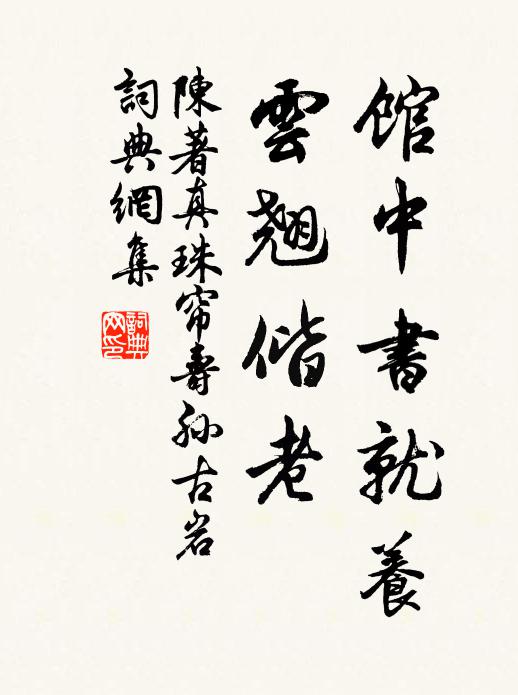 館中書就養
雲翹偕老
陳著真珠帘壽孫古岩
詞典網集
詞典网印